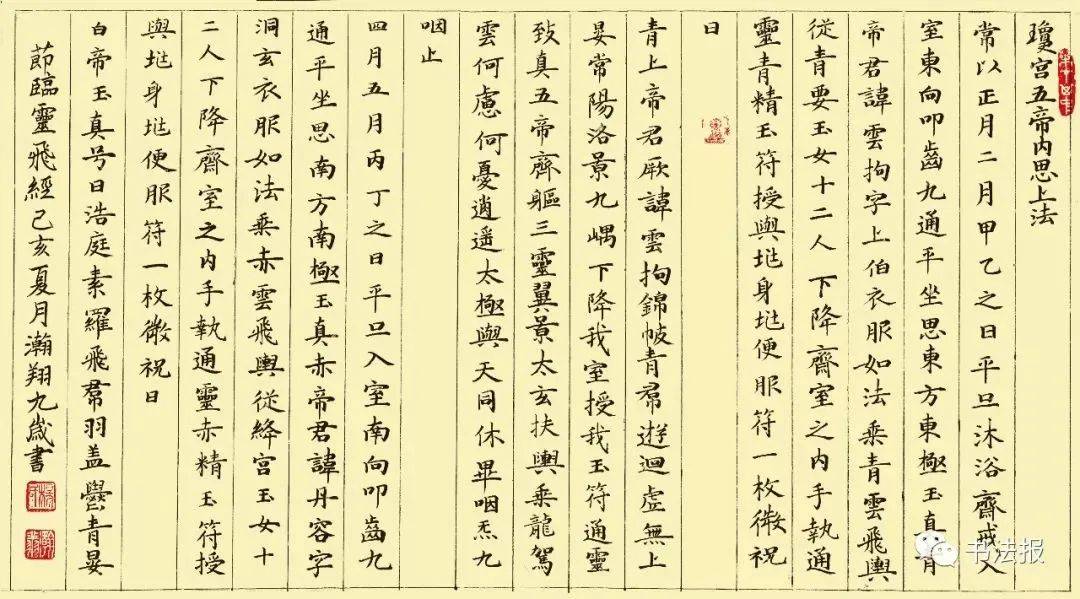 瓊宫五帝内思上法
常以正月二月甲乙之日平旦沐浴齋戒入
室東向叩齒九通平坐思東方東極玉真青
帝君諱雲拘字上伯衣服如法乘青雲飛輿
從青要玉女十二人下降齋室之内手執通
靈青精玉符授與垗身垗便服符一枚微祝
曰
青上帝君厥諱雲拘錦帔青帬遊迴虛無上
晏常陽洛景九嵎下降我室授我玉符通靈
致真五帝齊軀三靈翼景太玄扶輿乘龍駕
雲何慮何憂逍遥太極與天同休畢咽炁九
咽止
四月五月丙丁之日平旦入室南向叩齒九
通平坐思南方南極玉真赤帝君諱丹容字
洞玄衣服如法乘赤雲飛輿從絳宫玉女十
二人下降齋室之内手執通靈赤精玉符授
與垗身垗便服符一枚微祝曰
白帝玉真号曰浩庭素羅飛帬羽盖鬱青晏
節臨靈飛經己亥夏月瀚翔九歲書
书法报